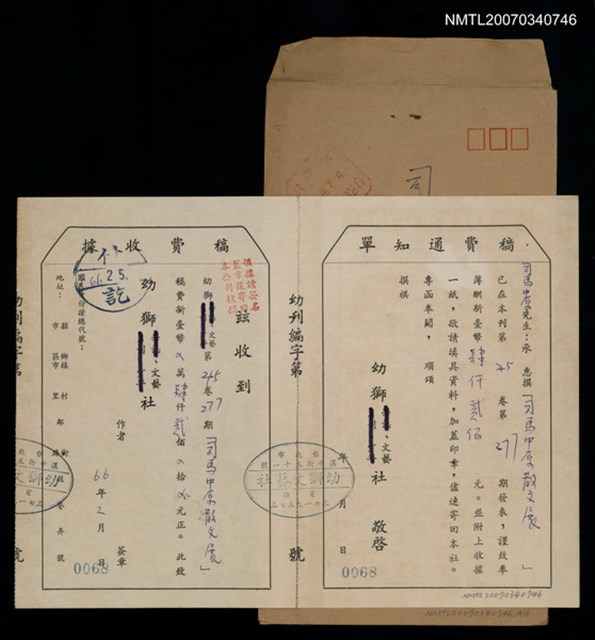 NMTL20070340746
司
稿費通知單
司馬中原先生：承 惠撰「司馬中原散文展」
已在本刊第 45 卷第 277 期發表，謹致奉
薄酬新臺幣 肆仟貳佰 元。並附上收據
一紙，敬請填具資料，加蓋印章，儘速寄回本社。
專函奉聞， 順頌
撰祺
幼獅 文藝社 敬啓
年 月 日
0068
幼刊編字第 號
稿費收據
據請簽名
茲收到
幼獅 文藝第 45 卷 277 期「司馬中原散文展」
稿費新臺幣 萬 肆仟 貳佰 拾 元正。此致
幼獅 文藝社
作者 簽章
66年2月 日
66.2.5.
訖
地址：
0068
幼刊編字第 號
台北市
幼獅文藝社
NMTL20070340746
NMTL20070340746